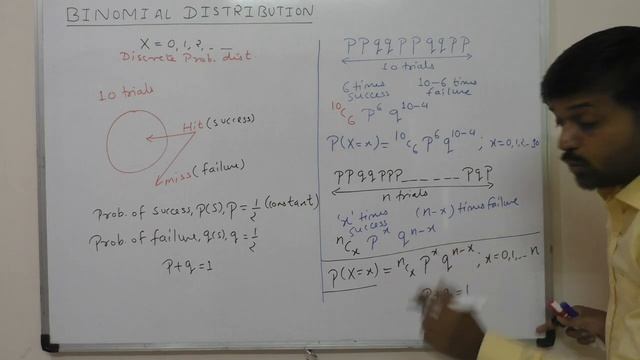 BINOMIAL DISTRIBUTION
X = 0, 1, 2, - - -
Discrete Prob. dist
10 trials
Hit (success)
miss (failure)
Prob. of success, P(S), P = 1/2 (constant)
Prob. of failure, q(s), q = 1/2
P+q = 1
P P q q P P q q P P
10 trials
6 times success 10-6 times failure
¹⁰C₆ P⁶ q¹⁰⁻⁴
P(X=x) = ¹⁰C₆ P⁶ q¹⁰⁻⁴ ; x=0,1,2--10
P P q q P P P _ _ _ _ _ P q P
n trials
'x' times success (n-x) times failure
ⁿCₓ Pˣ qⁿ⁻ˣ
P(X=x) = ⁿCₓ Pˣ qⁿ⁻ˣ ; x=0,1,--n
= 1